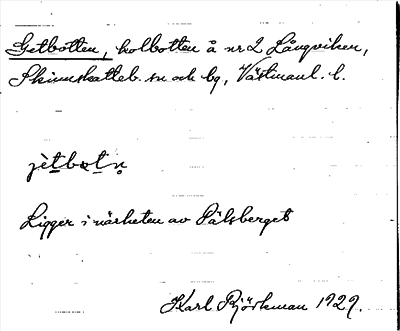 Getbotten, kolbotten å nr 2 Långviken,
Skinnskatteb. sn och bg, Västmanl. l.
jètbo̱tn̥
Ligger i närheten av Pålsberget
Karl Björkman 1929.